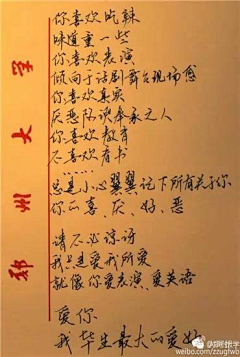 郑州大学
你喜欢吃辣
味道重一些
你喜欢表演
倾向于话剧舞台现场感
你喜欢真实
厌恶阿谀奉承之人
你喜欢教育
不喜欢看书
……
总是小心翼翼记下所有关于你
你的喜、厌、好、恶
请不必惊讶
我只是爱我所爱
就像你爱表演、爱英语
爱你
我毕生最大的爱好
weibo.com/zzuglwb